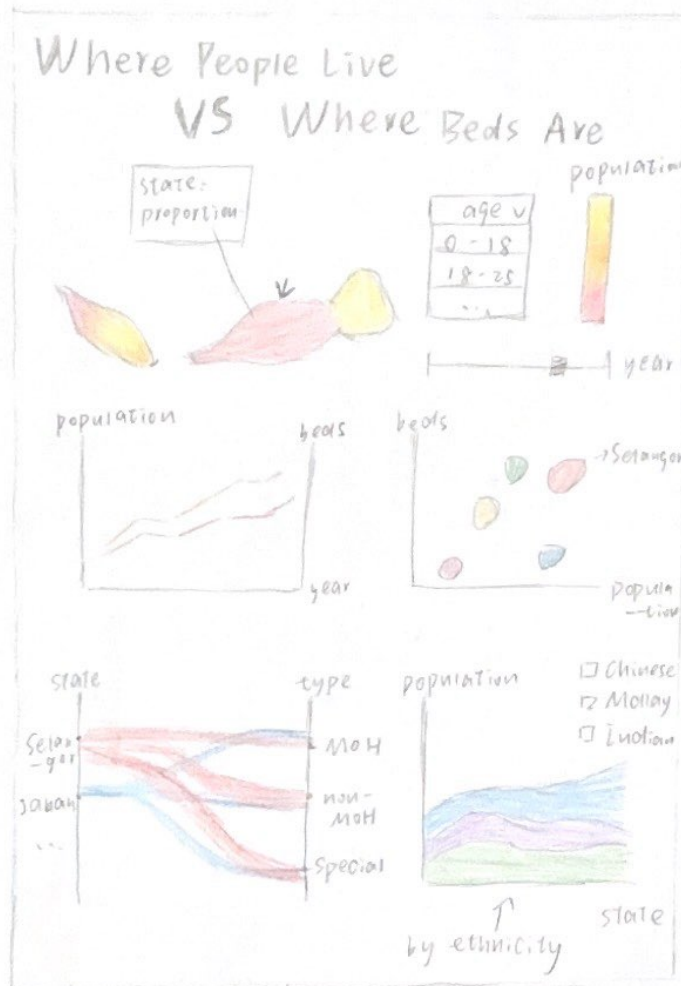 Where People Live
VS Where Beds Are
state:
proportion
age v
0 - 18
18 - 25
...
population
year
population
beds
year
beds
→ Selangor
popula
-tion
state
type
Selan
-gor
Jaban
...
MOH
non-
MOH
Special
population
□ Chinese
☑ Mollay
□ Indian
state
by ethnicity